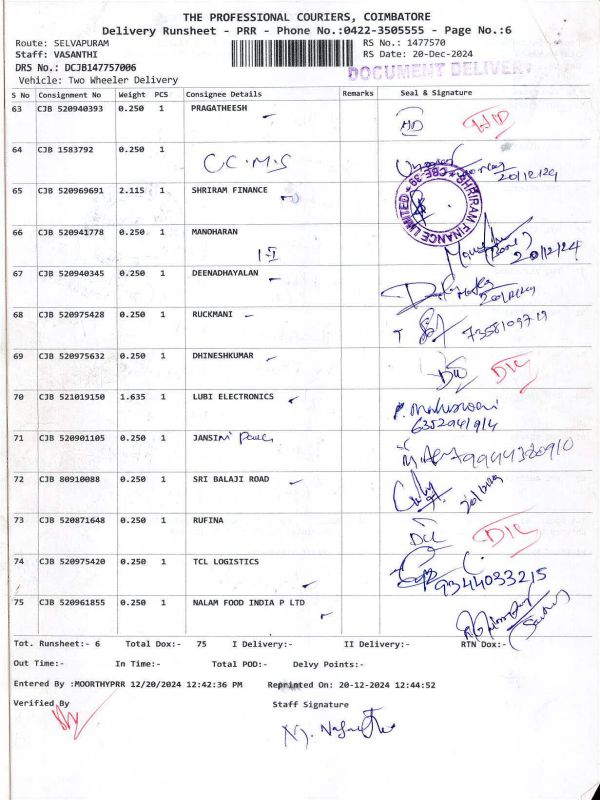 THE PROFESSIONAL COURIERS, COIMBATORE
Delivery Runsheet - PRR - Phone No.:0422-3505555 - Page No.:6
Route: SELVAPURAM RS No.: 1477570
Staff: VASANTHI RS Date: 20-Dec-2024
DRS No.: DCJB147757006
DOCUMENT DELIVERY
Vehicle: Two Wheeler Delivery
S No Consignment No Weight PCS Consignee Details Remarks Seal & Signature
63 CJB 520940393 0.250 1 PRAGATHEESH
64 CJB 1583792 0.250 1 C.C.M.S 20/12/24
65 CJB 520969691 2.115 1 SHRIRAM FINANCE SHRIRAM FINANCE COMPANY LIMITED CBE-39
66 CJB 520941778 0.250 1 MANOHARAN 20/12/24
67 CJB 520940345 0.250 1 DEENADHAYALAN
68 CJB 520975428 0.250 1 RUCKMANI
69 CJB 520975632 0.250 1 DHINESHKUMAR DIL
70 CJB 521019150 1.635 1 LUBI ELECTRONICS
71 CJB 520901105 0.250 1 JANSINI
72 CJB 80910088 0.250 1 SRI BALAJI ROAD
73 CJB 520871648 0.250 1 RUFINA
74 CJB 520975420 0.250 1 TCL LOGISTICS 9344033215
75 CJB 520961855 0.250 1 NALAM FOOD INDIA P LTD
Tot. Runsheet:- 6 Total Dox:- 75 I Delivery:- II Delivery:- RTN Dox:-
Out Time:- In Time:- Total POD:- Delvy Points:-
Entered By :MOORTHYPRR 12/20/2024 12:42:36 PM Reprinted On: 20-12-2024 12:44:52
Verified By Staff Signature